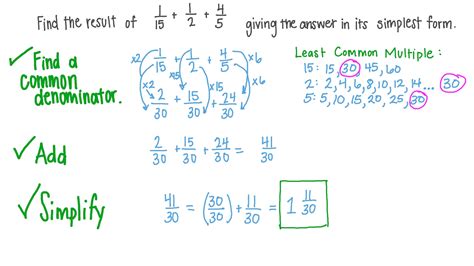 Find the result of 1/15 + 1/2 + 4/5 giving the answer in its simplest form.
✓ Find a common denominator.
×2 1/15 + 1/2 + 4/5 ×6
×2 ×5 ×15 ×6
2/30 + 15/30 + 24/30
Least Common Multiple:
15: 15, 30, 45, 60
2: 2, 4, 6, 8, 10, 12, 14... 30
5: 5, 10, 15, 20, 25, 30
✓ Add
2/30 + 15/30 + 24/30 = 41/30
✓ Simplify
41/30 = (30/30) + 11/30 = 1 11/30